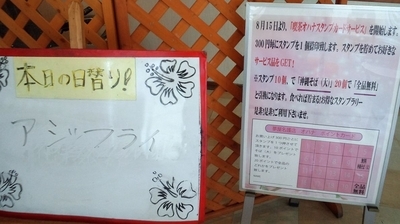 本日の日替り!
アジフライ
8月15日より、「喫茶オハナスタンプカードサービス」を開始します。
300円毎にスタンプを1個押印致します。スタンプを貯めてお好きな
サービス品をGET!
※スタンプ10個、で「沖縄そば(大)」20個で「全品無料」
と引換になります。食べれば貯まるお得なスタンプラリー
是非是非ご利用下さいませ。
全品
無料